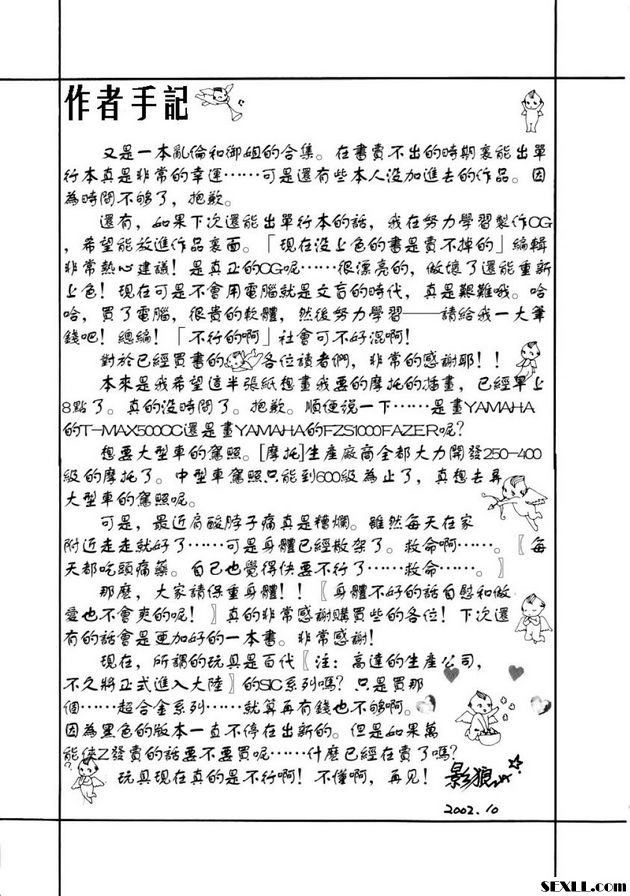 作者手記
又是一本亂倫和御姐的合集。在書賣不出的時期裏能出單
行本真是非常的幸運……可是還有些本人沒加進去的作品。因
為時間不够了，抱歉。
還有，如果下次還能出單行本的話，我在努力學習製作CG
，希望能放進作品裏面。「現在沒上色的書是賣不掉的」編輯
非常熱心建議！是真正的CG呢……很漂亮的，做懷了還能重新
上色！現在可是不會用電腦就是文盲的時代，真是艱難哦。哈
哈，買了電腦，很貴的軟體，然後努力學習——請給我一大筆
錢吧！總編！「不行的啊」社會可不好混啊！
對於已經買書的各位讀者們，非常的感謝耶！！
本來是我希望這半張紙想畫我要的摩托的插畫，已經早上
8點了。真的沒時間了。抱歉。順便說一下……是畫YAMAHA
的T-MAX500CC還是畫YAMAHA的FZS1000FAZER呢？
想要大型車的駕照。[摩托]生産廠商全都大力開發250-400
級的摩托了。中型車駕照只能到600級為止了，真想去弄
大型車的駕照呢。
可是，最近肩酸脖子痛真是糟爛。雖然每天在家
附近走走就好了……可是身體已經散架了。救命啊……。〖每
天都吃頭痛藥。自己也覺得快要不行了……救命……。〗
那麽，大家請保重身體！！〖身體不好的話自慰和做
愛也不會爽的呢！〗真的非常感謝購買些的各位！下次還
有的話會是更加好的一本書。非常感謝！
現在，所謂的玩具是百代〖注：高達的生産公司，
不久將正式進入大陸〗的SIC系列嗎？只是買那
個……超合金系列……就算再有錢也不够啊。
因為黑色的版本一直不停在出新的。但是如果萬
能俠Z發賣的話要不要買呢……什麽已經在賣了嗎？
玩具現在真的是不行啊！不懂啊，再見！影狼
2002.10
SEXLL.COM